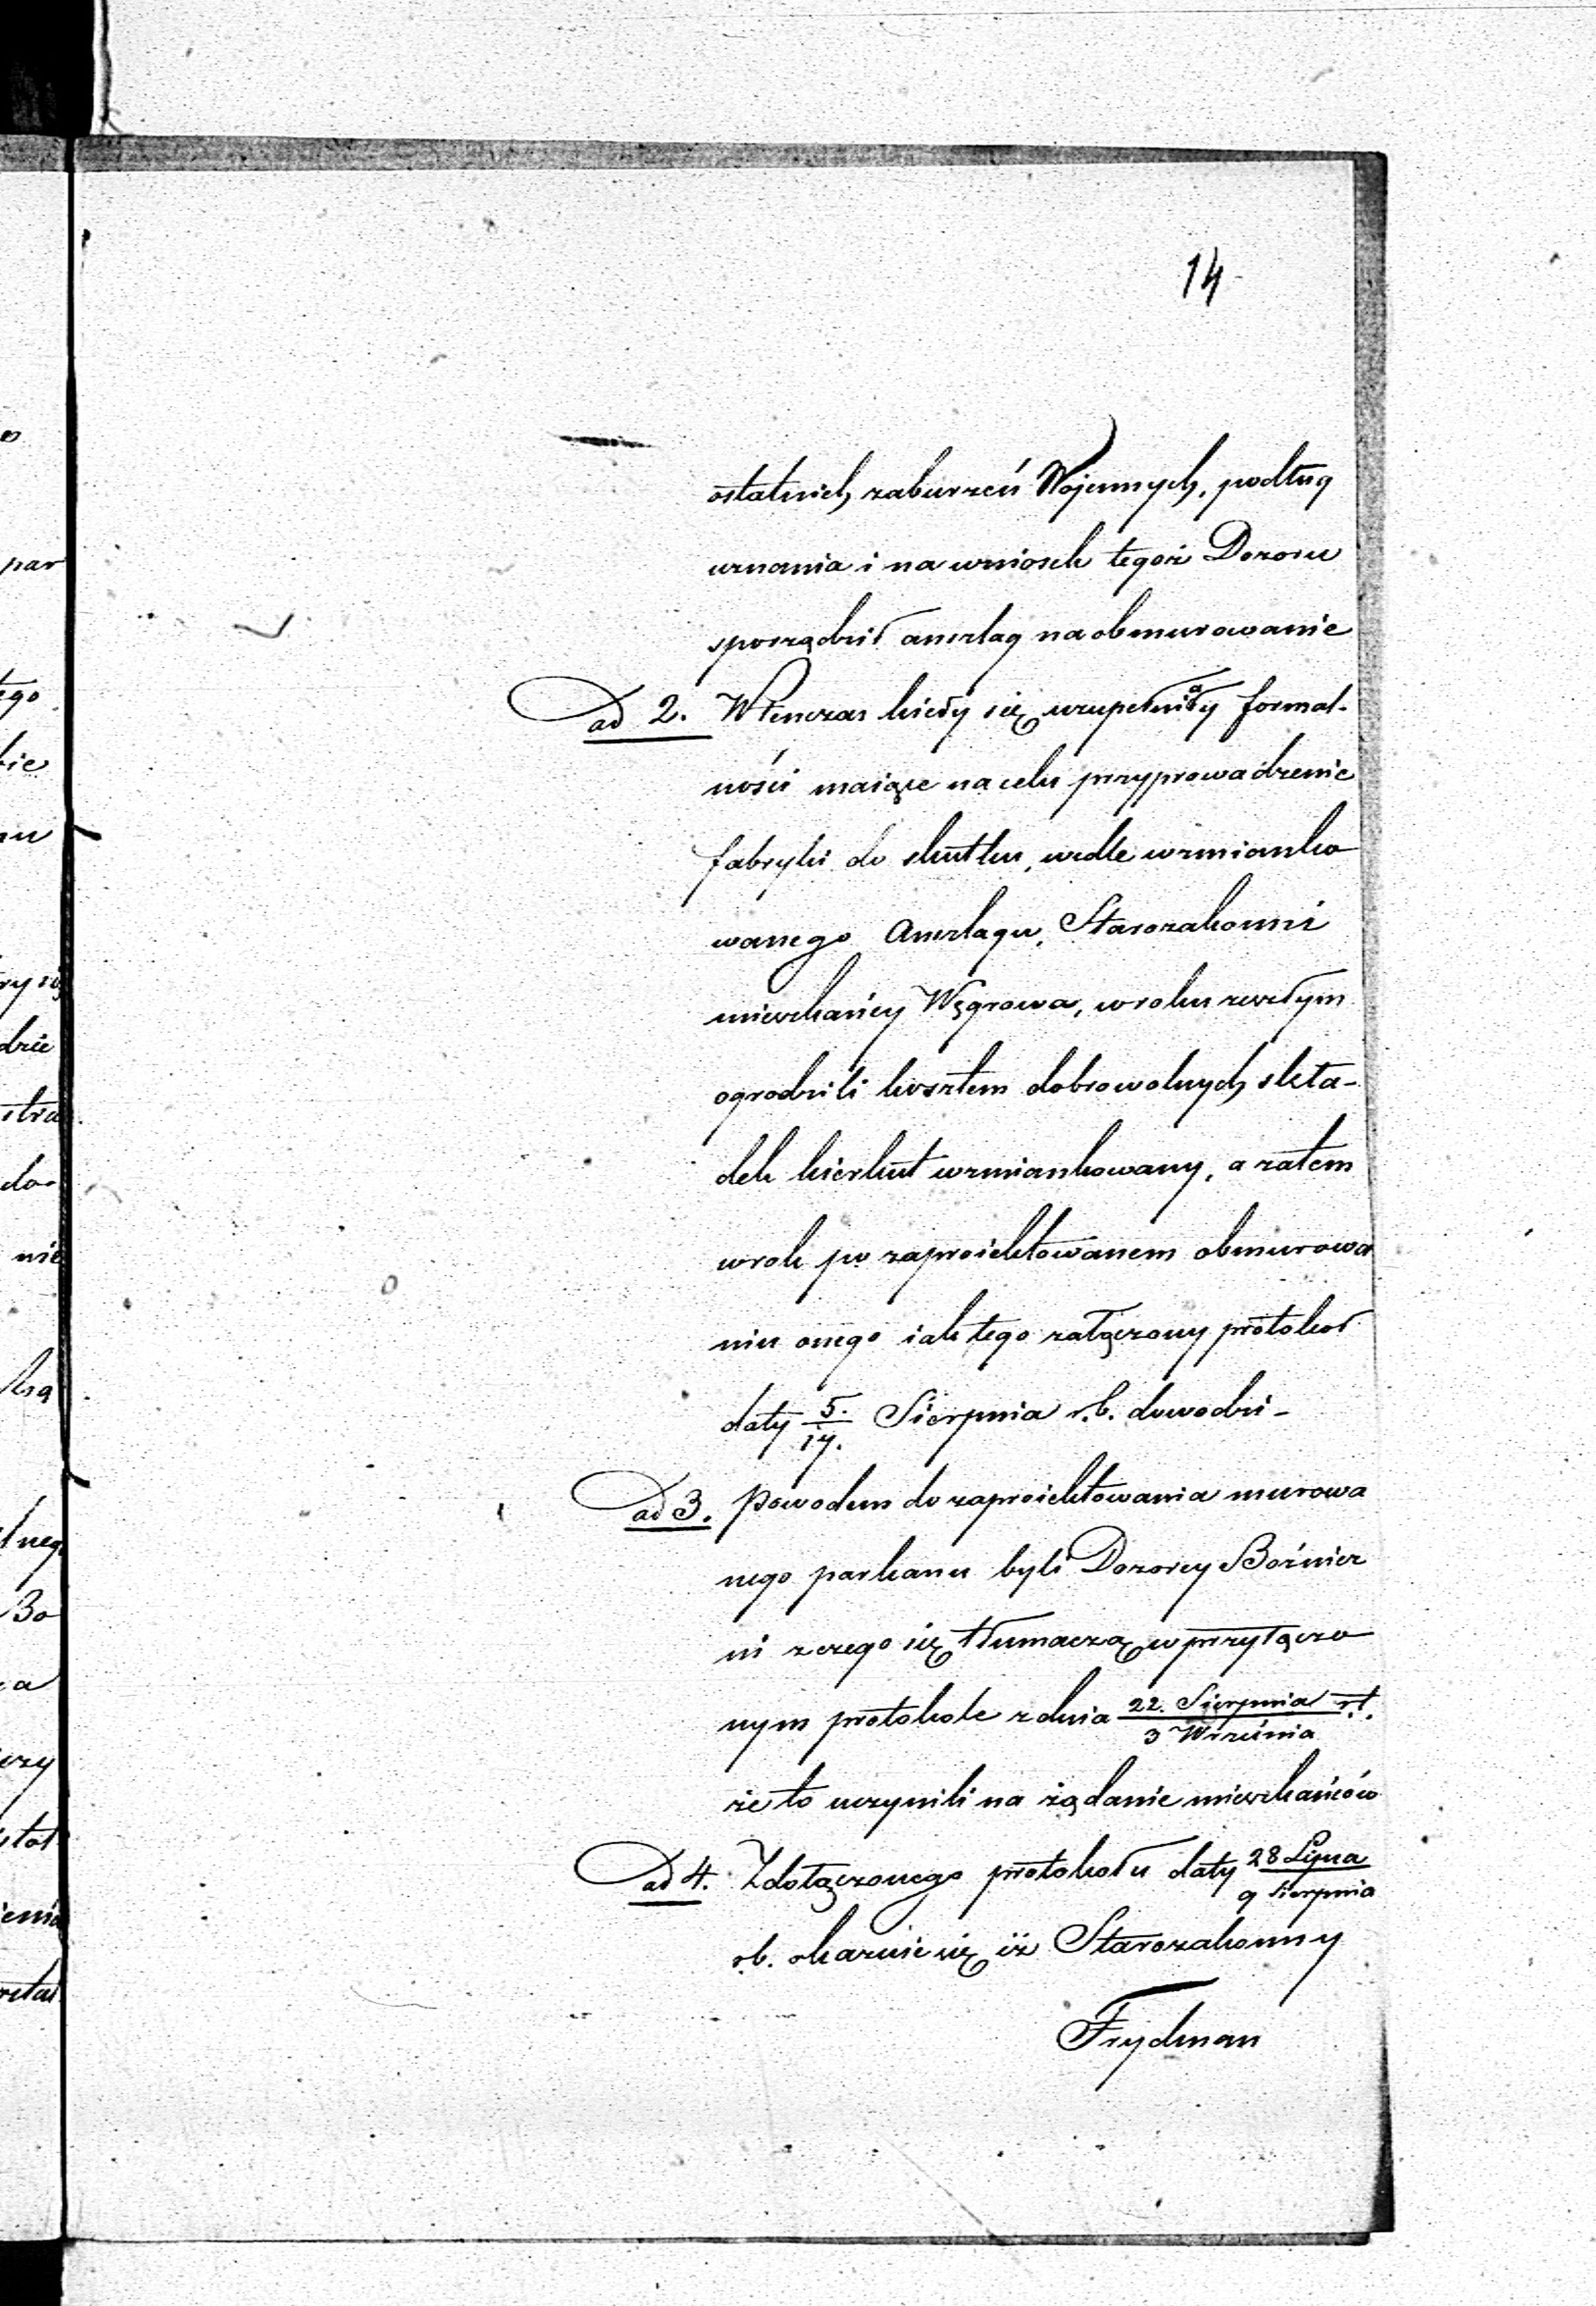 14
ostatnich zaburzeń Wojennych, podług
uznania i na wniosek tegoż Dozoru
sporządził anszlag na obmurowanie
ad 2. Wtenczas kiedy się uzupełniały formal-
ności maiące na celu przyprowadzenie
fabryki do skutku, wedle wzmianko
wanego Anszlagu, Starozakonni
mieszkańcy Węgrowa, w roku zeszłym
ogrodzili kosztem dobrowolnych skła-
dek kierkut wzmiankowany, a zatem
w rok po zaproiektowanem obmurowa
niu onego iak tego załączony protokoł
daty 5./17. Sierpnia r.b. dowodzi-
ad 3. Powodem do zaproiektowania murowa
nego parkanu byli Dozorcy Bóżnicz
ni z czego się tłumaczą w przyłączo
nym protokole z dnia 22. Sierpnia/3 Września r.t.
że to uczynili na żądanie mieszkańców
ad 4. Z dołączonego protokołu daty 28 Lipca/9 Sierpnia
r.b. okazuie się iż Starozakonny
Frydman
par
nie
do-